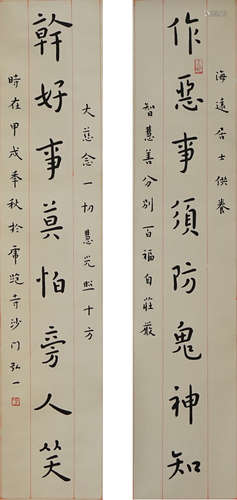 海遠居士供養
作惡事須防鬼神知
智慧善分別百福自莊嚴
大慈念一切慧光照十方
幹好事莫怕旁人笑
時在甲戌年秋於虎跑寺沙门弘一